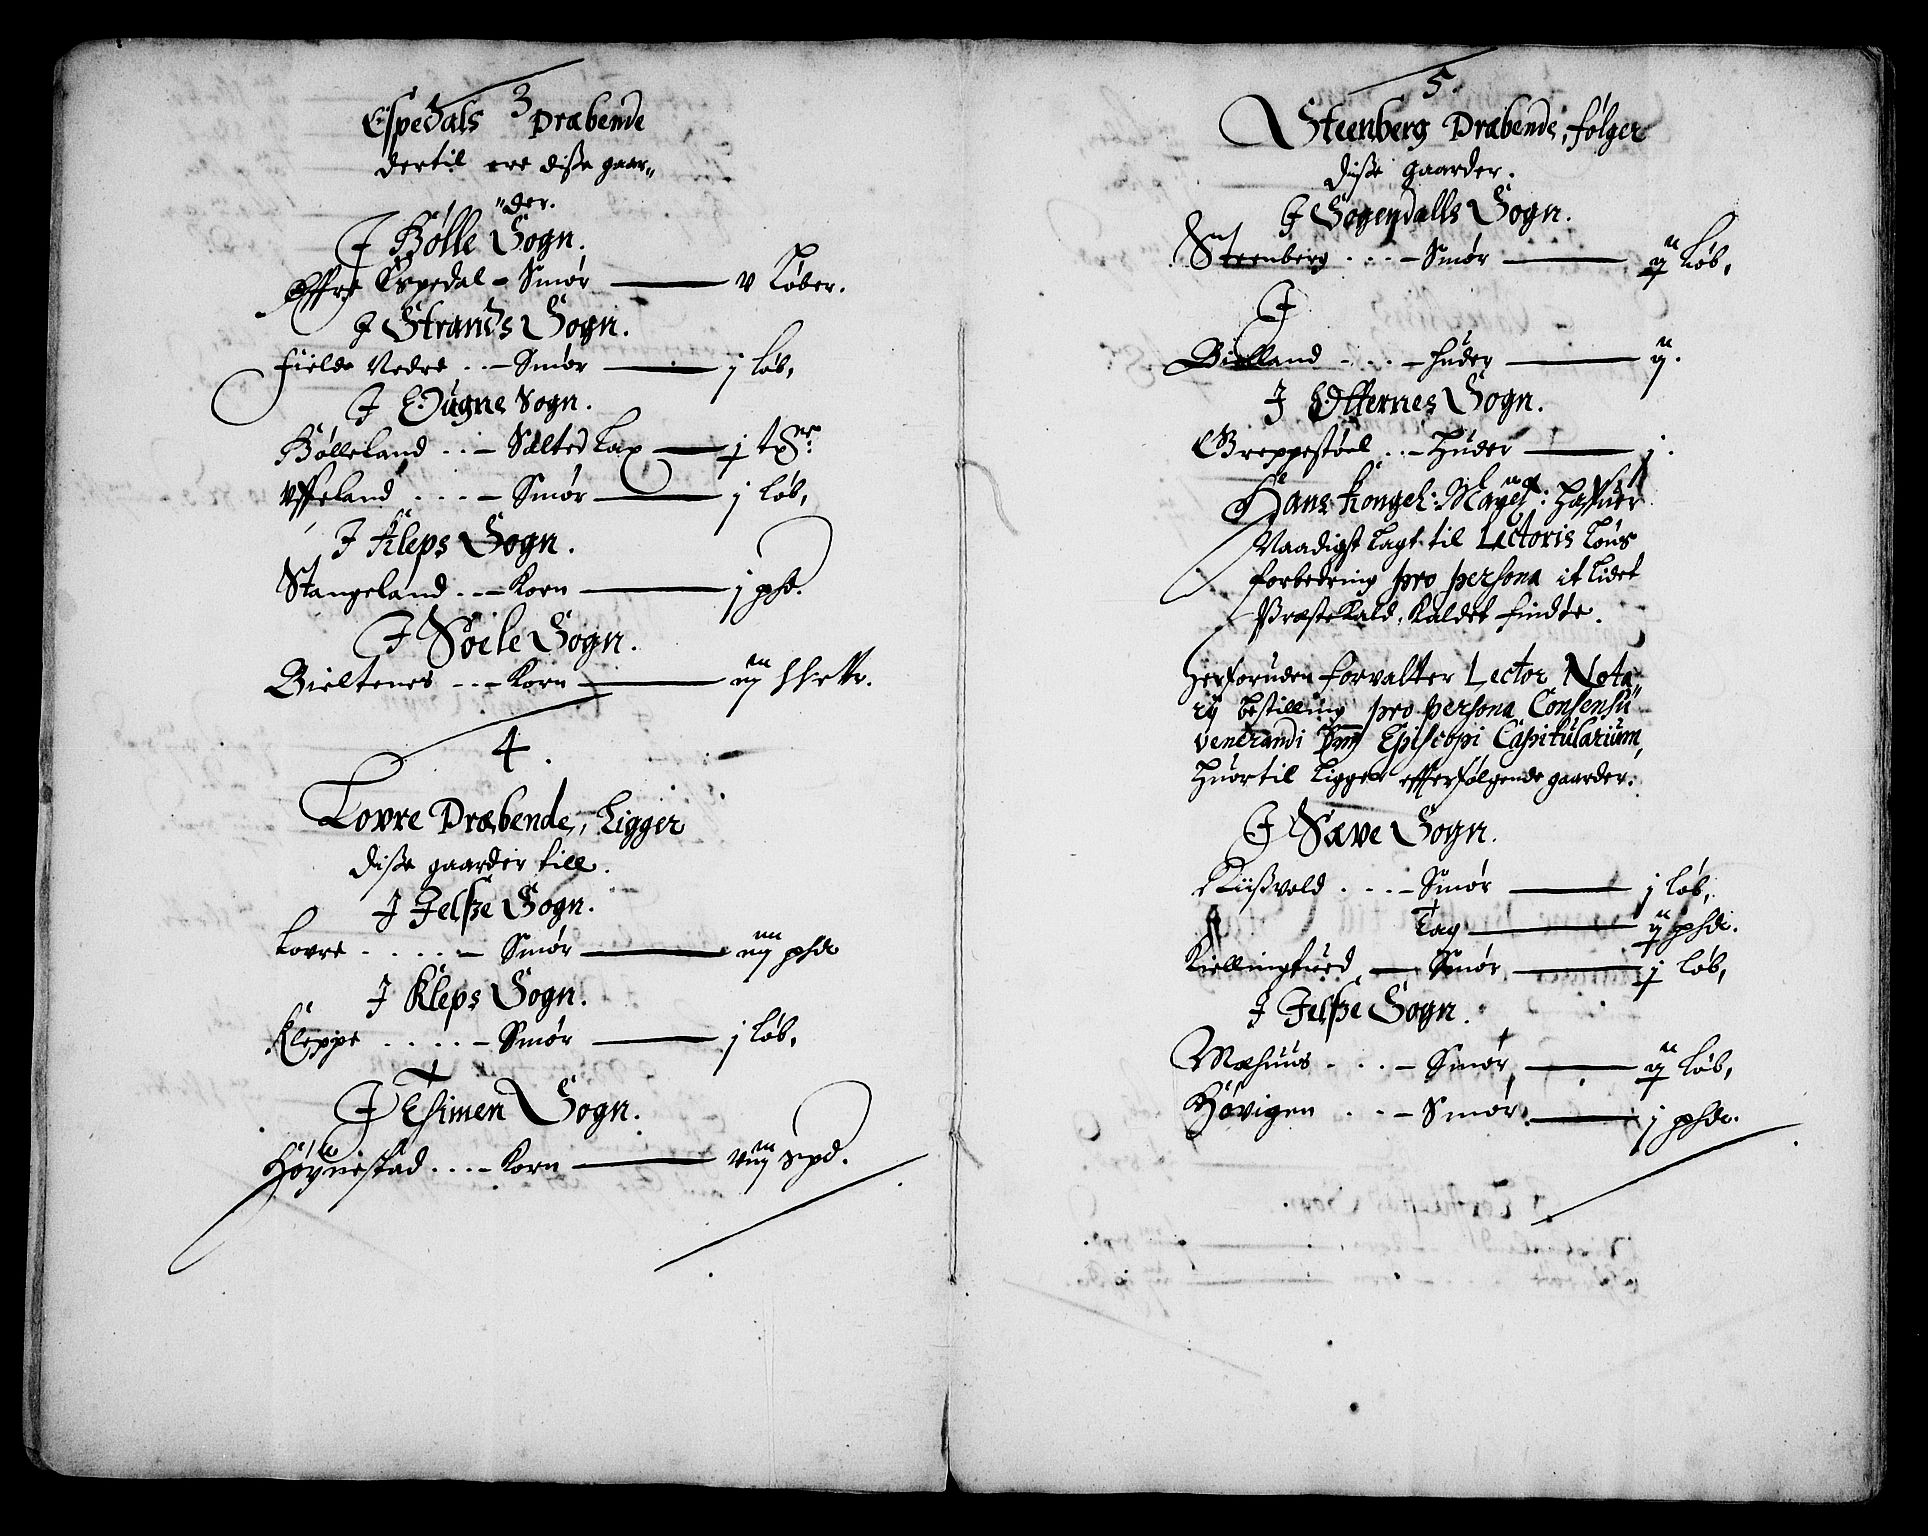 3
Espedals Præbende
dertil ere disse gaar„
„der.
J Bølle Sogn.
Øffre Espedal - Smør — v Løber.
J Strands Sogn.
Fielde Nedre . . - Smør — j løb,
J Øugne Sogn.
Bølleland . . - Salted Lax —
Uffeland . . . - Smør — j løb,
J Kleps Sogn.
Stangeland . . - Korn — j phd.
J Soile Sogn.
Bieltenes . . - Korn — iij
4.
Tovre Præbende, Ligger
disse gaarder till.
J Jelsze Sogn.
Lovre . . . . - Smør — iiij phd
J Kleps Sogn.
Kleppe . . . . - Smør — j løb,
J Thimen Sogn.
Høynestad . . . - Korn — viij spd.
5.
Steenberg Præbende, følger
disse gaarder.
J Sogendalls Sogn.
Steenberg . . . - Smør — ij Løb,
J
Bielland . . . - huder — ij.
J Offernes Sogn.
Greppestøel . . - Huder — j.
Hans Kongel: Mayest: Haffuer
Naadigst lagt til Lectoris Løns
forbedring pro persona it lidet
Præstekald, kaldet Findøe.
Herforuden forvalter Lector Nota„
rij bestilling pro persona Consensu
venerandi Dni Episcopi Capitularium,
Huortil Ligger effterfølgende gaarder:
J Sæve Sogn.
. . . - Smør — j løb,
Tag — ij phd.
Kiellingtued — Smør — j løb,
J Jelsze Sogn.
Mæhuus . . . - Smør — ij Løb,
Høvigen . . - Smør — j phd.